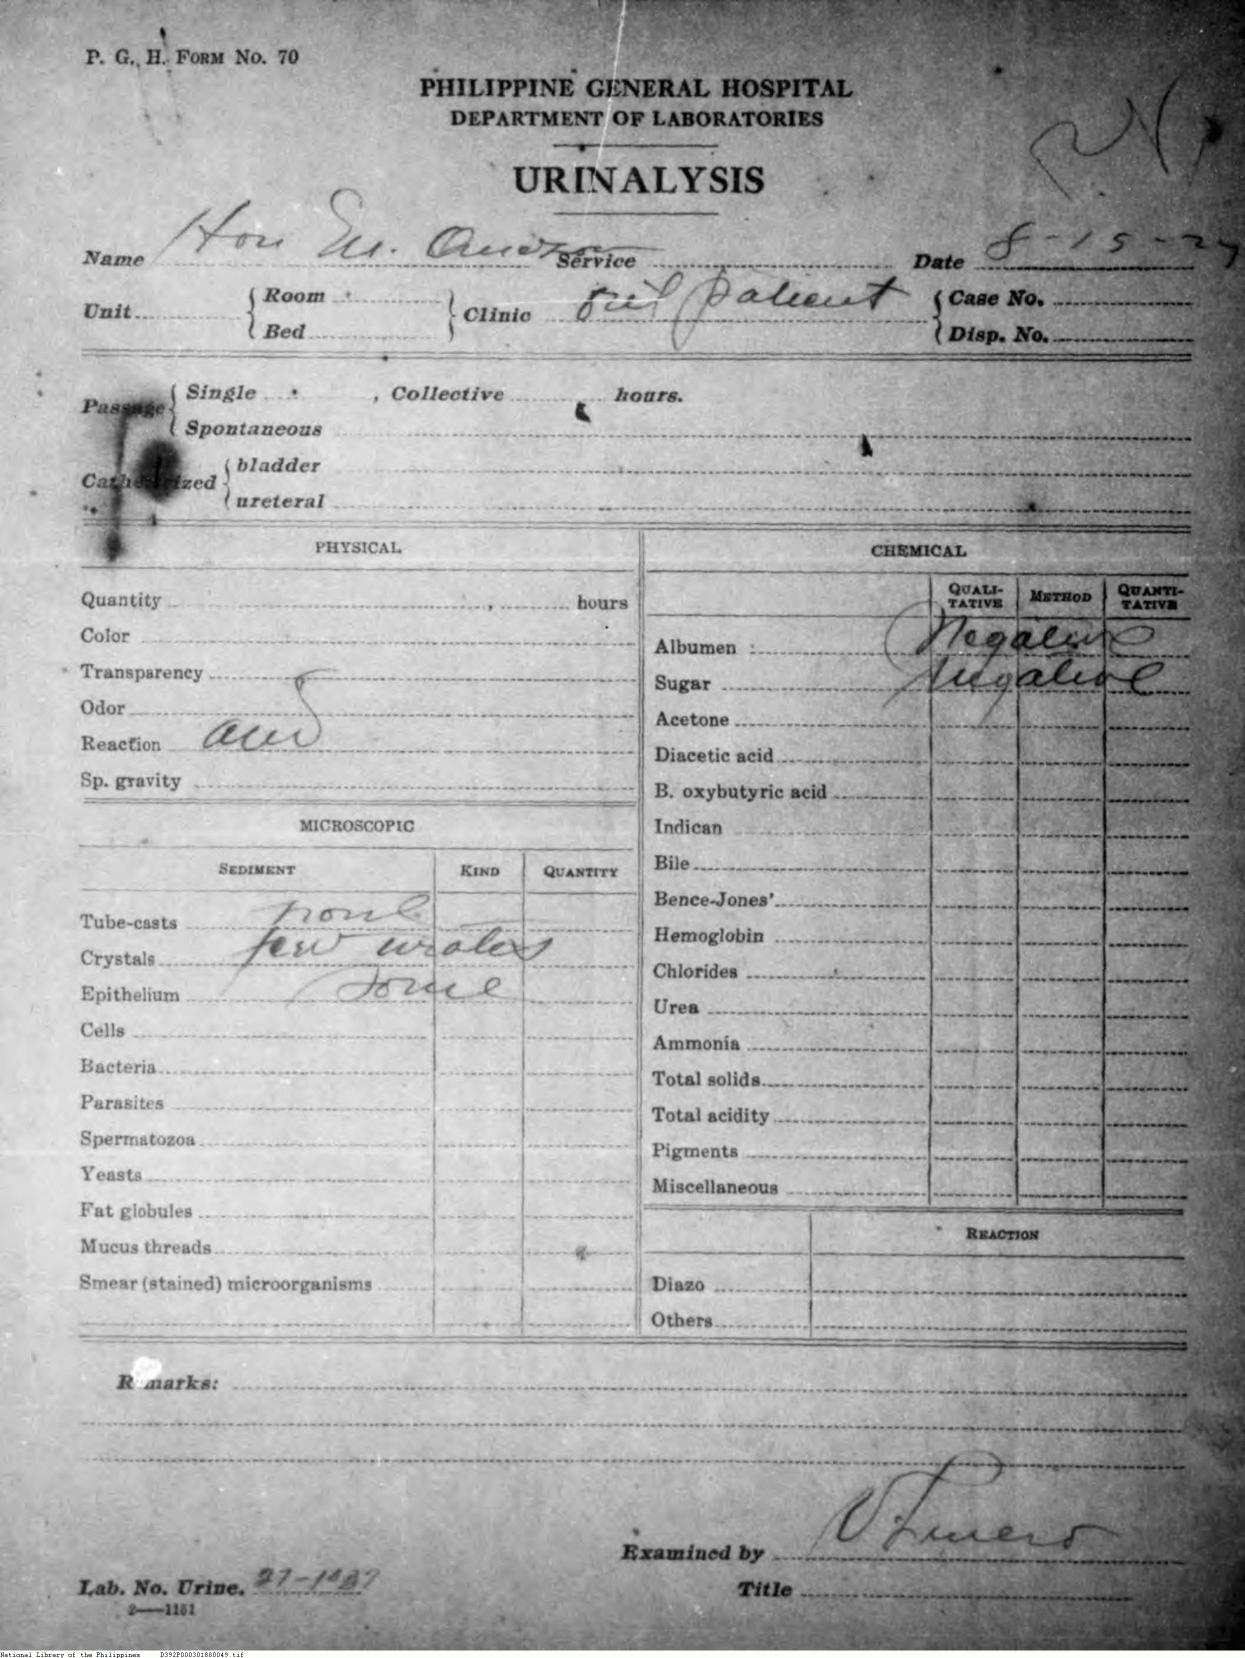 P. G. H. FORM No. 70
PHILIPPINE GENERAL HOSPITAL
DEPARTMENT OF LABORATORIES
URINALYSIS
Name Hon M. Service Date 8-15-27
Unit Room Bed Clinic out patient Case No. Disp. No.
Passage Single , Collective hours.
Spontaneous
Catheterized bladder
ureteral
PHYSICAL
Quantity , hours
Color
Transparency
Odor
Reaction acid
Sp. gravity
MICROSCOPIC
SEDIMENT KIND QUANTITY
Tube-casts none
Crystals few urates
Epithelium some
Cells
Bacteria
Parasites
Spermatozoa
Yeasts
Fat globules
Mucus threads
Smear (stained) microorganisms
CHEMICAL
QUALITATIVE METHOD QUANTITATIVE
Albumen Negative
Sugar Negative
Acetone
Diacetic acid
B. oxybutyric acid
Indican
Bile
Bence-Jones'
Hemoglobin
Chlorides
Urea
Ammonia
Total solids
Total acidity
Pigments
Miscellaneous
REACTION
Diazo
Others
Remarks:
Examined by
Lab. No. Urine.
Title
2—1151
National Library of the Philippines D392P000301880049.tif